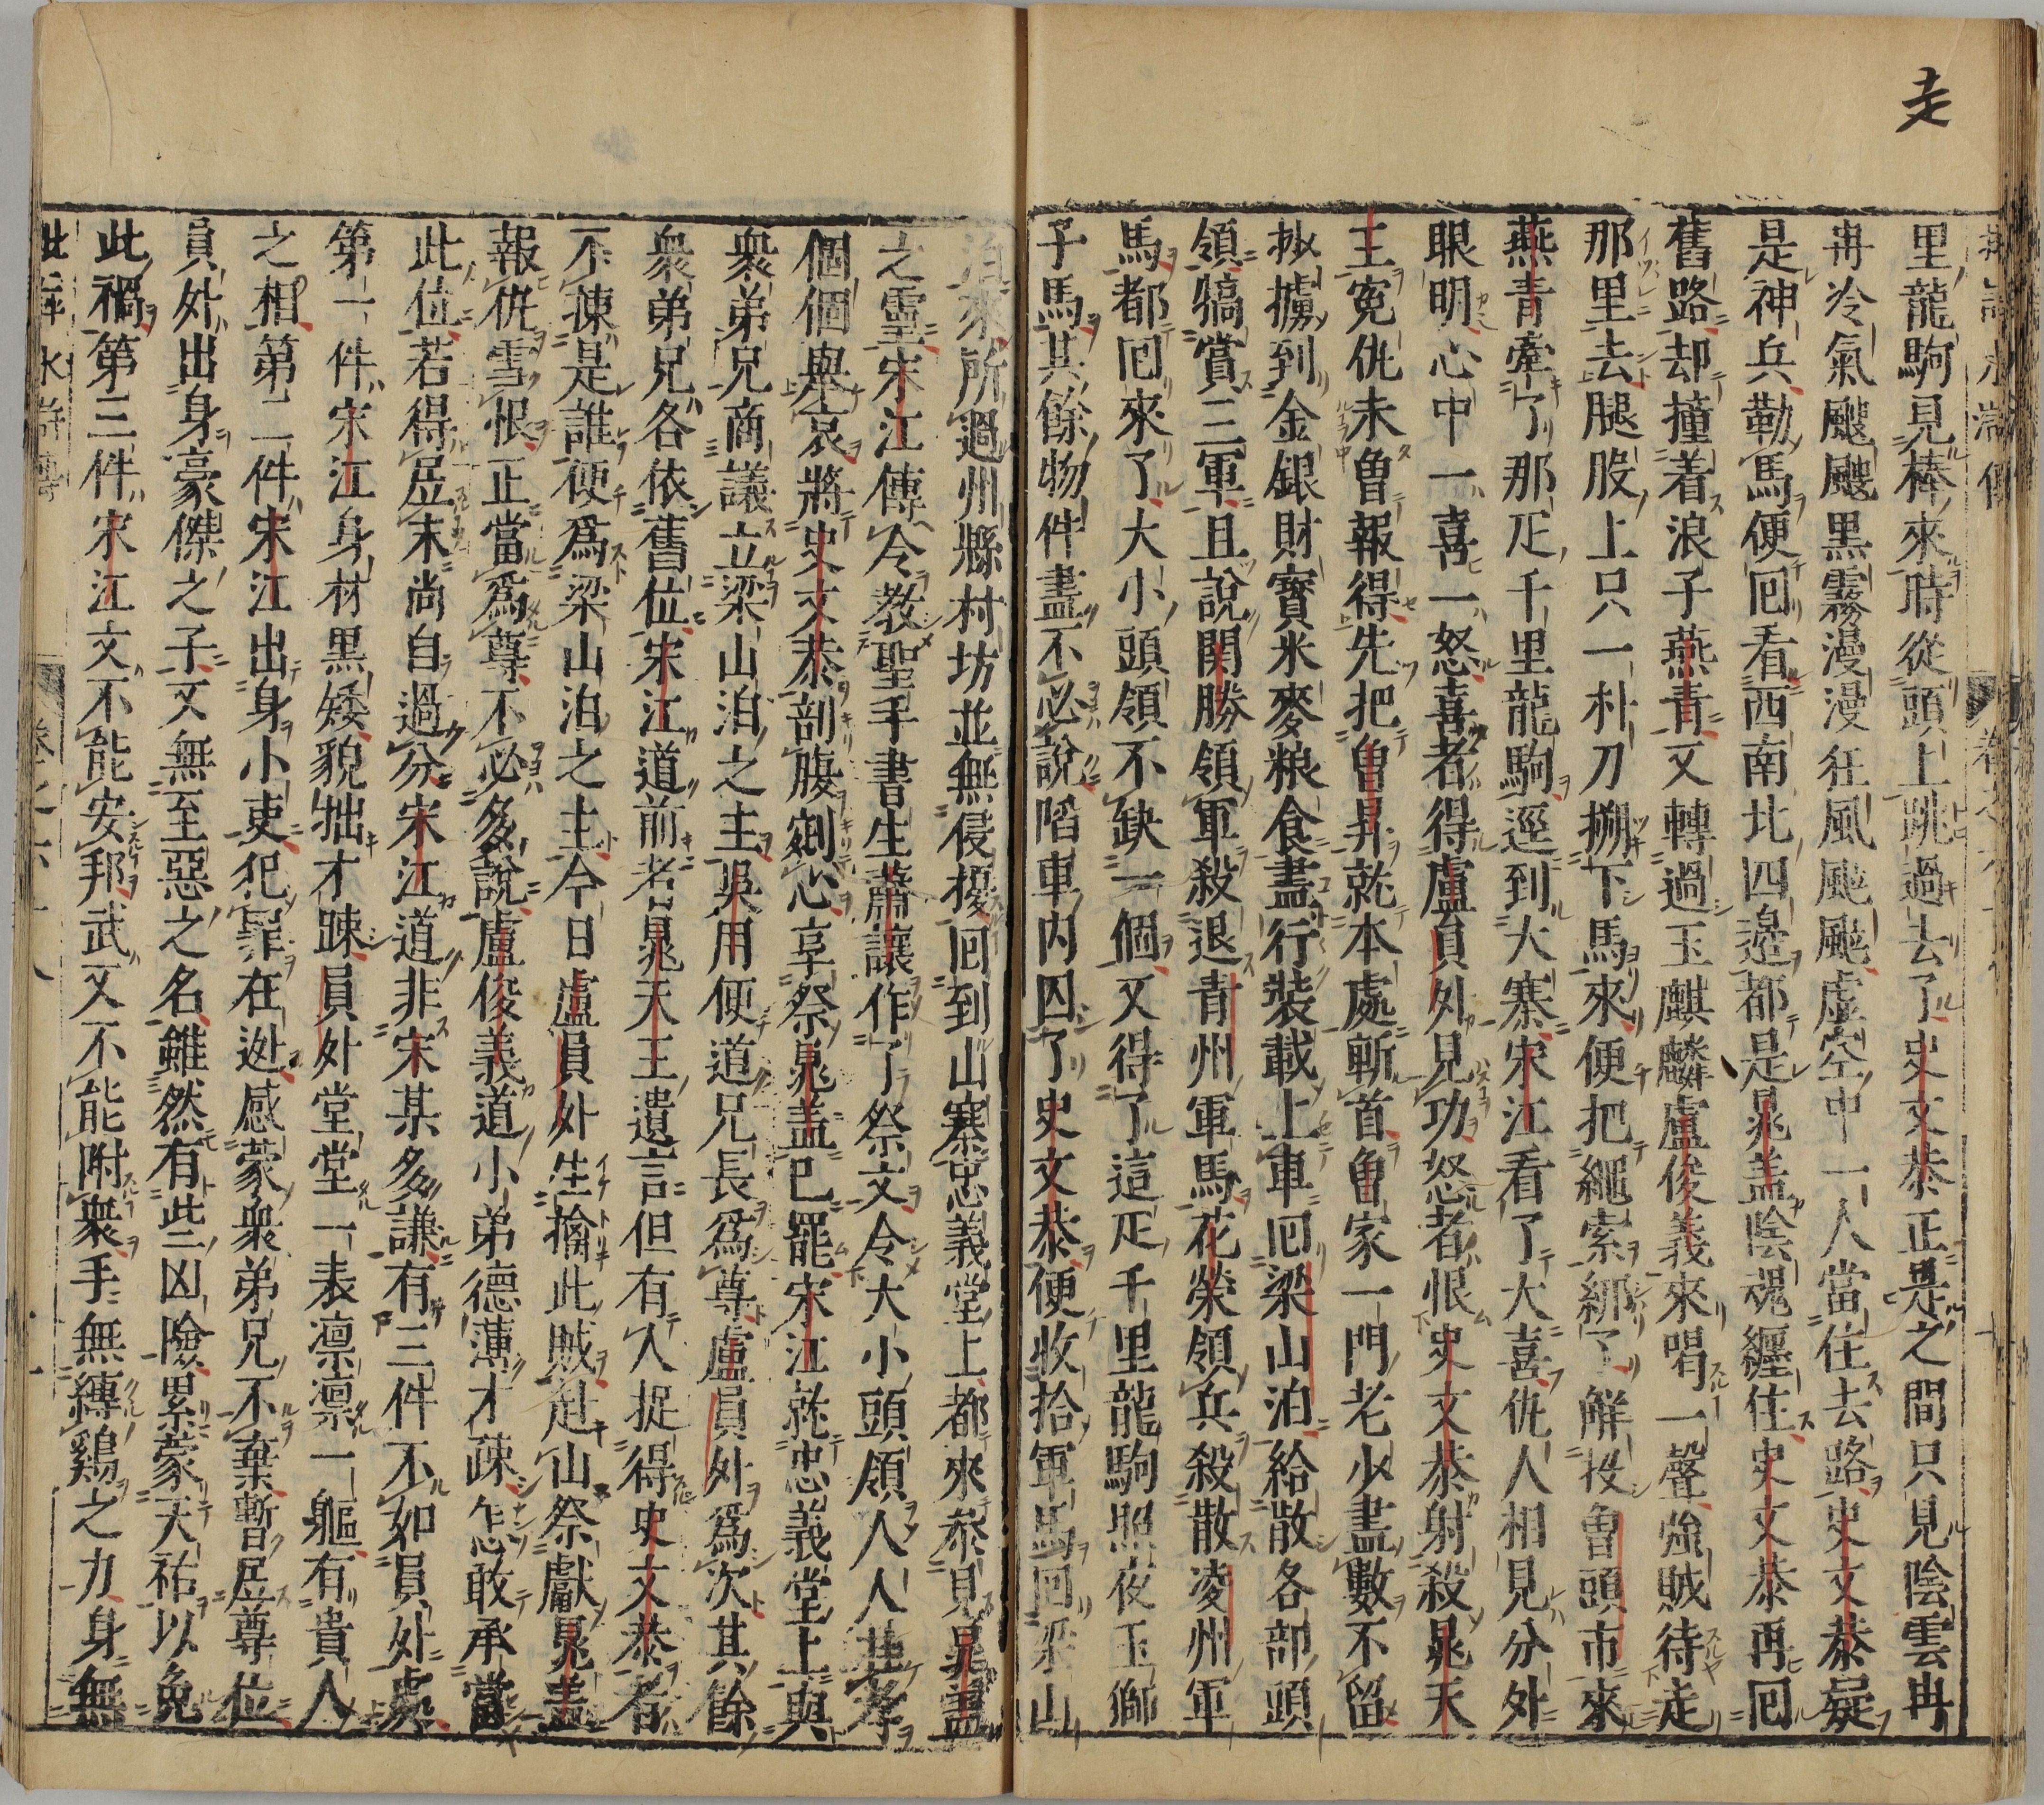 走
里龍駒見棒來時從頭上跳過去了史文恭正是之間只見陰雲冉
冉冷氣颼颼黑霧漫漫狂風颯颯虛空中一人當住去路史文恭疑
是神兵勒馬便回看西南北四邊都是晁盖陰魂纏住史文恭再回
舊路却撞着浪子燕青又轉過玉麒麟盧俊義來喝一聲強賊待走
那里去腿股上只一朴刀搠下馬來便把繩索綁了解投曾頭市來
燕青牽了那疋千里龍駒逕到大寨宋江看了大喜仇人相見分外
眼明心中一喜一怒喜者得盧員外見功怒者恨史文恭射殺晁天
王冤仇未曾報得先把曾昇就本處斬首曾家一門老少盡數不留
抄擄到金銀財寳米麥粮食盡行裝載上車回梁山泊給散各部頭
領犒賞三軍且說関勝領軍殺退青州軍馬花榮領兵殺散凌州軍
馬都回來了大小頭領不缺一個又得了這疋千里龍駒照夜玉獅
子馬其餘物件盡不必說陷車內囚了史文恭便收拾軍馬回梁山
泊來所過州縣村坊並無侵擾回到山寨忠義堂上都來叅見晁盖
之靈宋江傳令教聖手書生蕭讓作了祭文令大小頭領人人挂孝
個個舉哀將史文恭剖腹剜心享祭晁盖已罷宋江就忠義堂上與
衆弟兄商議立梁山泊之主吳用便道兄長爲尊盧員外爲次其餘
衆弟兄各依舊位宋江道前者晁天王遺言但有人捉得史文恭者
不揀是誰便爲梁山泊之主今日盧員外生擒此賊赴山祭獻晁盖
報仇雪恨正當爲尊不必多說盧俊義道小弟德薄才疎怎敢承當
此位若得居末尚自過分宋江道非宋某多謙有三件不如員外處
第一件宋江身材黑矮貌拙才疎員外堂堂一表凛凛一軀有貴人
之相第二件宋江出身小吏犯罪在逃感蒙衆弟兄不棄暫居尊位
員外出身豪傑之子又無至惡之名雖然有些凶險累蒙天祐以免
此禍第三件宋江文不能安邦武又不能附衆手無縛鷄之力身無